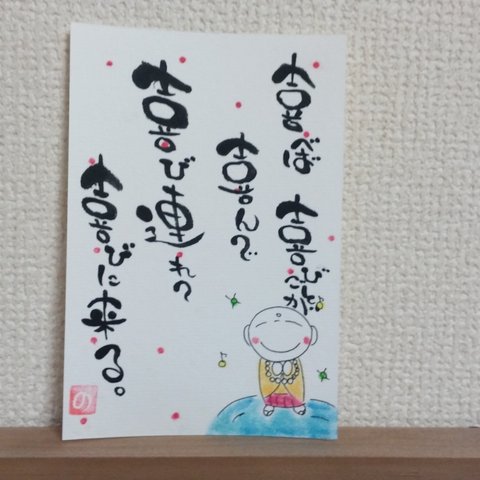 喜べば 喜びが
喜んで
喜び連れて
喜びに来る。
の